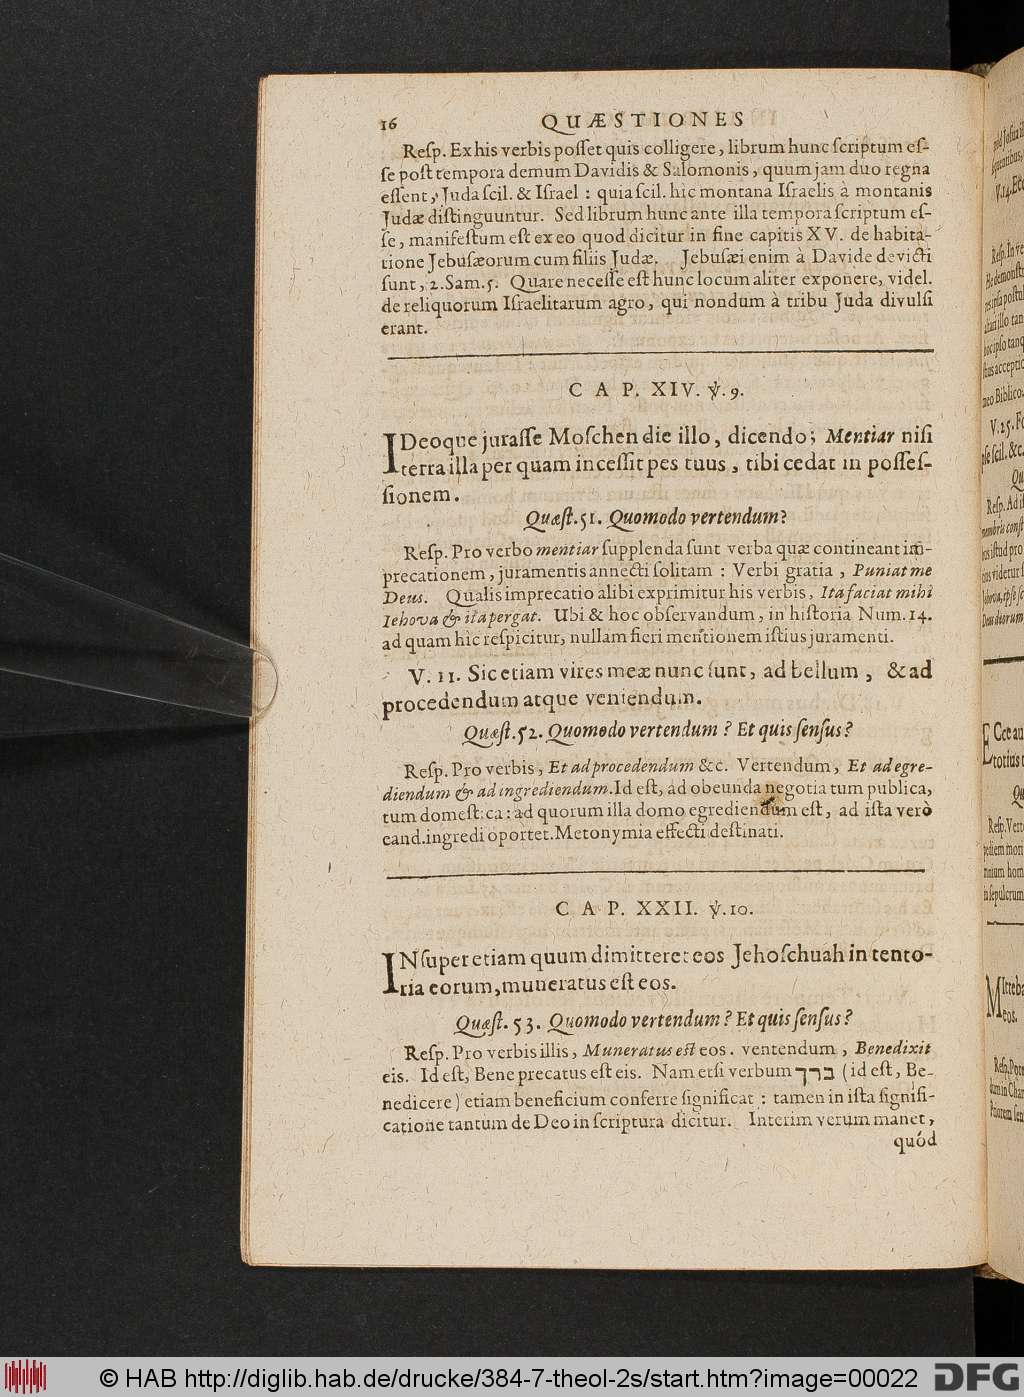 16 QUÆSTIONES
Reſp. Ex his verbis poſſet quis colligere, librum hunc ſcriptum eſ-
ſe poſt tempora demum Davidis & Salomonis, quum jam duo regna
eſſent, Juda ſcil. & Iſrael : quia ſcil. hic montana Iſraelis à montanis
Judæ diſtinguuntur. Sed librum hunc ante illa tempora ſcriptum eſ-
ſe, manifeſtum eſt ex eo quod dicitur in fine capitis XV. de habita-
tione Jebuſæorum cum filiis Judæ. Jebuſæi enim à Davide devicti
ſunt, 2. Sam. 5. Quare neceſſe eſt hunc locum aliter exponere, videl.
de reliquorum Iſraelitarum agro, qui nondum à tribu Juda divulſi
erant.
CAP. XIV. ℣. 9.
IDeoque juraſſe Moſchen die illo, dicendo; Mentiar niſi
terra illa per quam inceſſit pes tuus, tibi cedat in poſſeſ-
ſionem.
Quæſt. 51. Quomodo vertendum?
Reſp. Pro verbo mentiar ſupplenda ſunt verba quæ contineant im-
precationem, juramentis annecti ſolitam : Verbi gratia, Puniat me
Deus. Qualis imprecatio alibi exprimitur his verbis, Ita faciat mihi
Iehova & ita pergat. Ubi & hoc obſervandum, in hiſtoria Num. 14.
ad quam hìc reſpicitur, nullam fieri mentionem iſtius juramenti.
V. 11. Sic etiam vires meæ nunc ſunt, ad bellum, & ad
procedendum atque veniendum.
Quæſt. 52. Quomodo vertendum? Et quis ſenſus?
Reſp. Pro verbis, Et ad procedendum &c. Vertendum, Et ad egre-
diendum & ad ingrediendum. Id eſt, ad obeunda negotia tum publica,
tum domeſtica: ad quorum illa domo egrediendum eſt, ad iſta verò
eand. ingredi oportet. Metonymia effecti deſtinati.
CAP. XXII. ℣. 10.
INſuper etiam quum dimitteret eos Jehoſchuah in tento-
ria eorum, muneratus eſt eos.
Quæſt. 53. Quomodo vertendum? Et quis ſenſus?
Reſp. Pro verbis illis, Muneratus eſt eos. ventendum, Benedixit
eis. Id eſt, Bene precatus eſt eis. Nam etſi verbum ברך (id eſt, Be-
nedicere) etiam beneficium conferre ſignificat : tamen in iſta ſignifi-
catione tantum de Deo in ſcriptura dicitur. Interim verum manet,
quód
© HAB http://diglib.hab.de/drucke/384-7-theol-2s/start.htm?image=00022
DFG